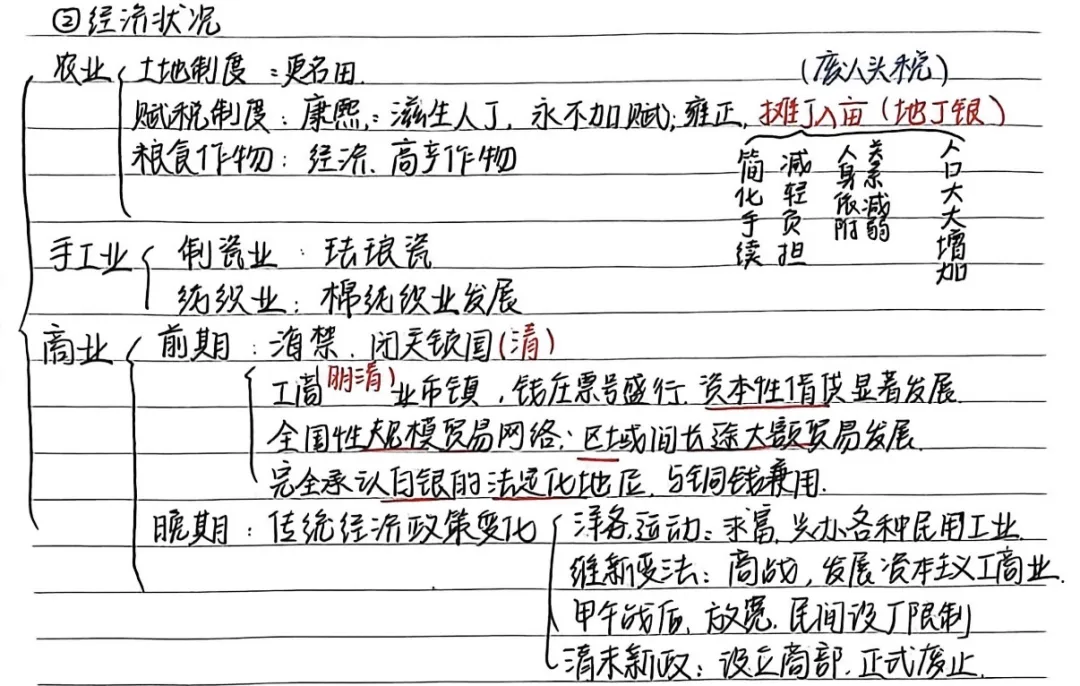 ②经济状况
农业 土地制度：更名田.
(废人头税)
赋税制度：康熙：滋生人丁，永不加赋；雍正，摊丁入亩（地丁银）
粮食作物：经济、高产作物
简化手续
减轻负担
人身依附关系减弱
人口大大增加
手工业 制瓷业：珐琅瓷
纺织业：棉纺织业发展
商业 前期：海禁、闭关锁国(清)
工商(明清)业市镇，钱庄票号盛行，资本性借贷显著发展.
全国性规模贸易网络：区域间长途大额贸易发展.
完全承认白银的法定化地位，与铜钱兼用.
晚期：传统经济政策变化
洋务运动：求富，兴办各种民用工业.
维新变法：商战，发展资本主义工商业.
甲午战后，放宽民间设厂限制
清末新政：设立商部，正式废止.